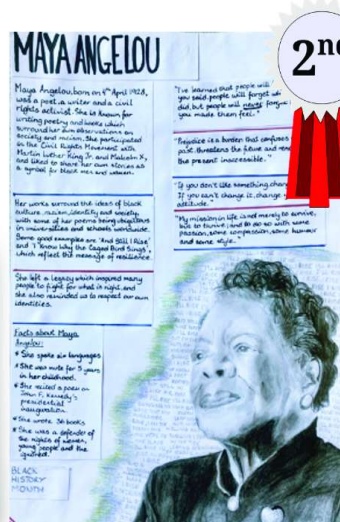 MAYA ANGELOU
2nd
Maya Angelou, born on 4th April 1928,
was a poet, a writer and a civil
rights activist. She is known for
writing poetry and books which
surround her own observations on
society and racism. She participated
in the Civil Rights Movement with
Martin Luther King Jr. and Malcolm X,
and liked to share her own stories as
a symbol for black men and women.
Her works surround the ideas of black
culture, racism, identity and society
with some of her poems being ubiquitous
in universities and schools worldwide.
Some good examples are 'And Still I Rise'
and 'I know why the Caged Bird Sings',
which reflect the message of resilience.
She left a legacy which inspired many
people to fight for what is right and
she also reminded us to respect our own
identities.
Facts about Maya
Angelou:
* She spoke six languages
* She was mute for 5 years
in her childhood.
* She recited a poem on
John F. Kennedy's
presidential
inauguration
* She wrote 36 books
* She was a defender of
the rights of women,
young people and the
ignored.
BLACK
HISTORY
MONTH
"I've learned that people will
you said, people will forget
did, but people will never
you made them feel."
"Prejudice is a burden that confuses
past, threatens the future and
the present inaccessible."
"If you don't like something, change
If you can't change it, change
attitude."
"My mission in life is not merely to survive,
but to thrive; and to do so with some
passion, some compassion, some humour
and some style."